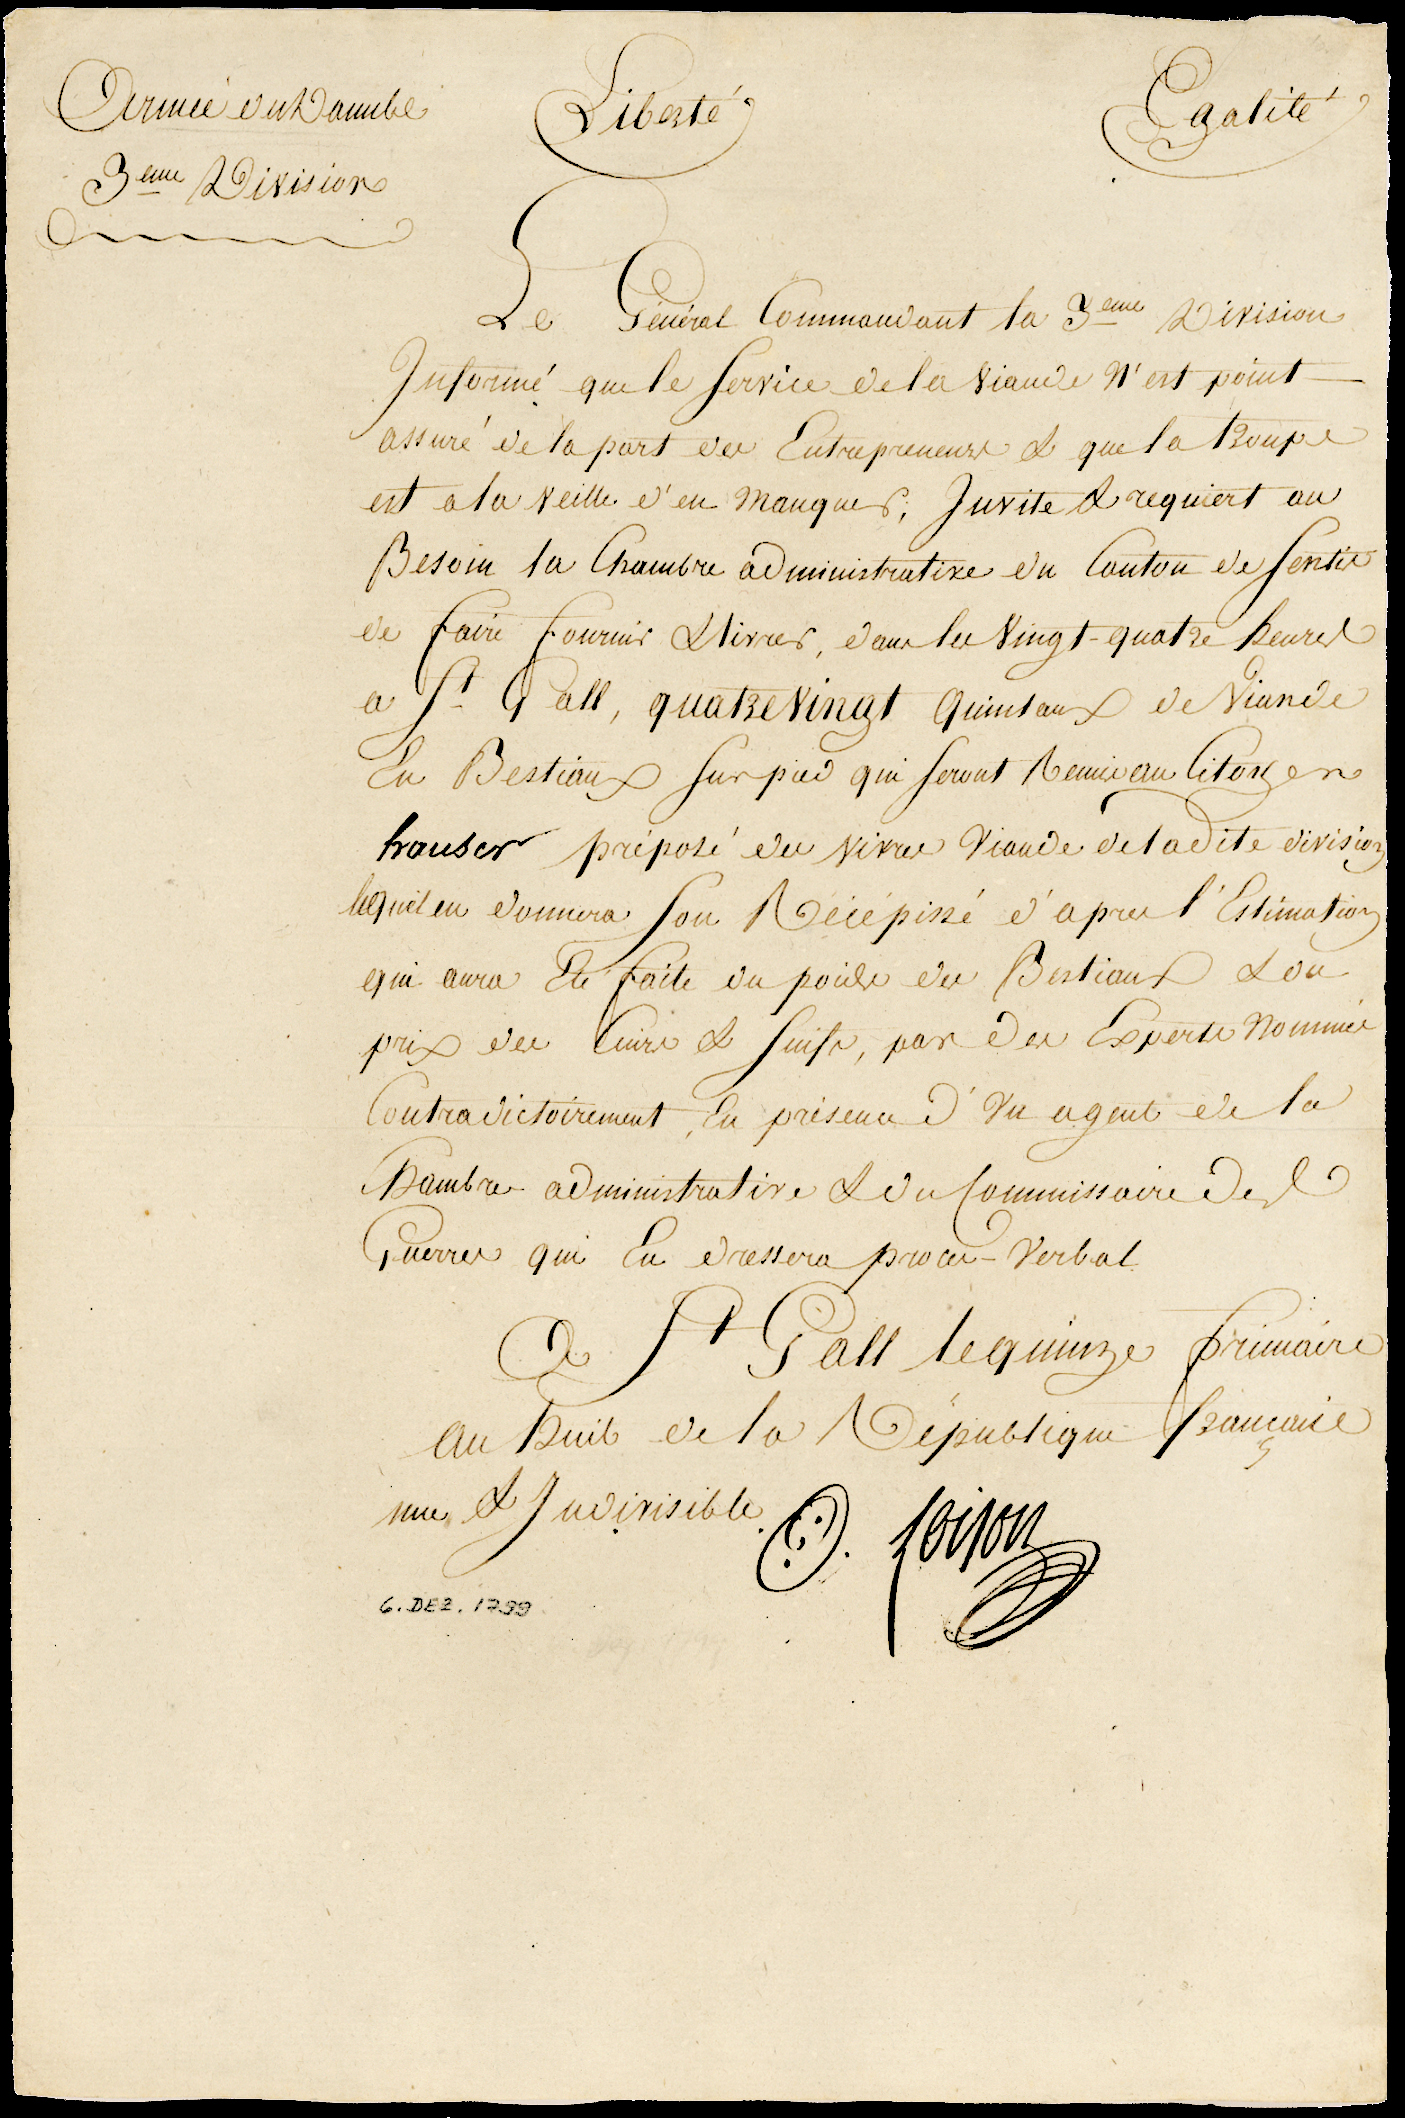 Armée du Danube
Liberté
Egalité
3eme Division
Le Général Commandant la 3eme Division
Informé que le Service de la Viande N'est point
assuré de la part des Entrepreneurs & que la troupe
est a la Veille d'en Manquer, Invite & requiert au
Besoin la Chambre administrative du Canton de Sentis
de faire fournir & livrer, dans les Vingt-quatre heures
a St Gall, quatreVingt Quintaux de Viande
En Bestiaux Sur pied qui Seront Remis au Citoyen
hauser préposé des Vivres Viande de ladite division
leQuel en donnera Son Récépissé d'apres l'Estimation
qui aura Eté faite du poids des Bestiaux & du
prix des Cuirs & Suifs, par des Experts Nommés
Contradictoirement, En présence d'Un agent de la
Chambre administrative & du Commissaire des
Guerres qui En dressera procès-Verbal
A St Gall le quinze frimaire
an huit de la République française
une & Indivisible.
Loison
6. DEZ. 1799